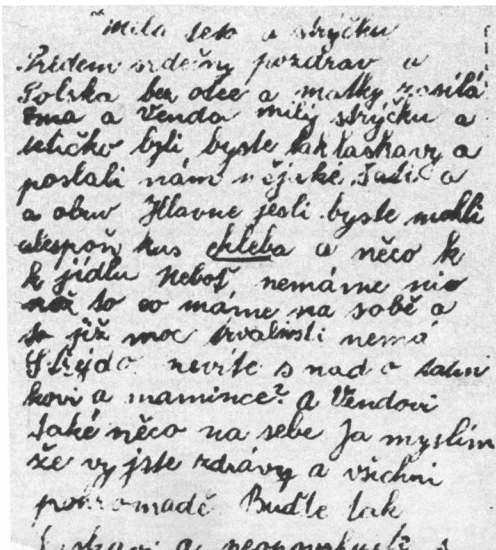 Milá teto a strýčku
Předem srdečný pozdrav a
Polska bez otce a matky zasílá
Ema a Venda milý strýčku a
tetičko byli byste tak laskavy a
poslali nám nějaké šatič a
a obuv Hlavne jesli byste mohli
alespoň kus chleba a něco k
k jídlu neboť nemáme nic
než to co máme na sobě a
to již moc trvalosti nemá
Strejdo nevíte s nad o tatin
kovi a mamince? a Vendovi
také něco na sebe Ja myslim
že vy jste zdrávy a všichni
pohromadě Buďte tak